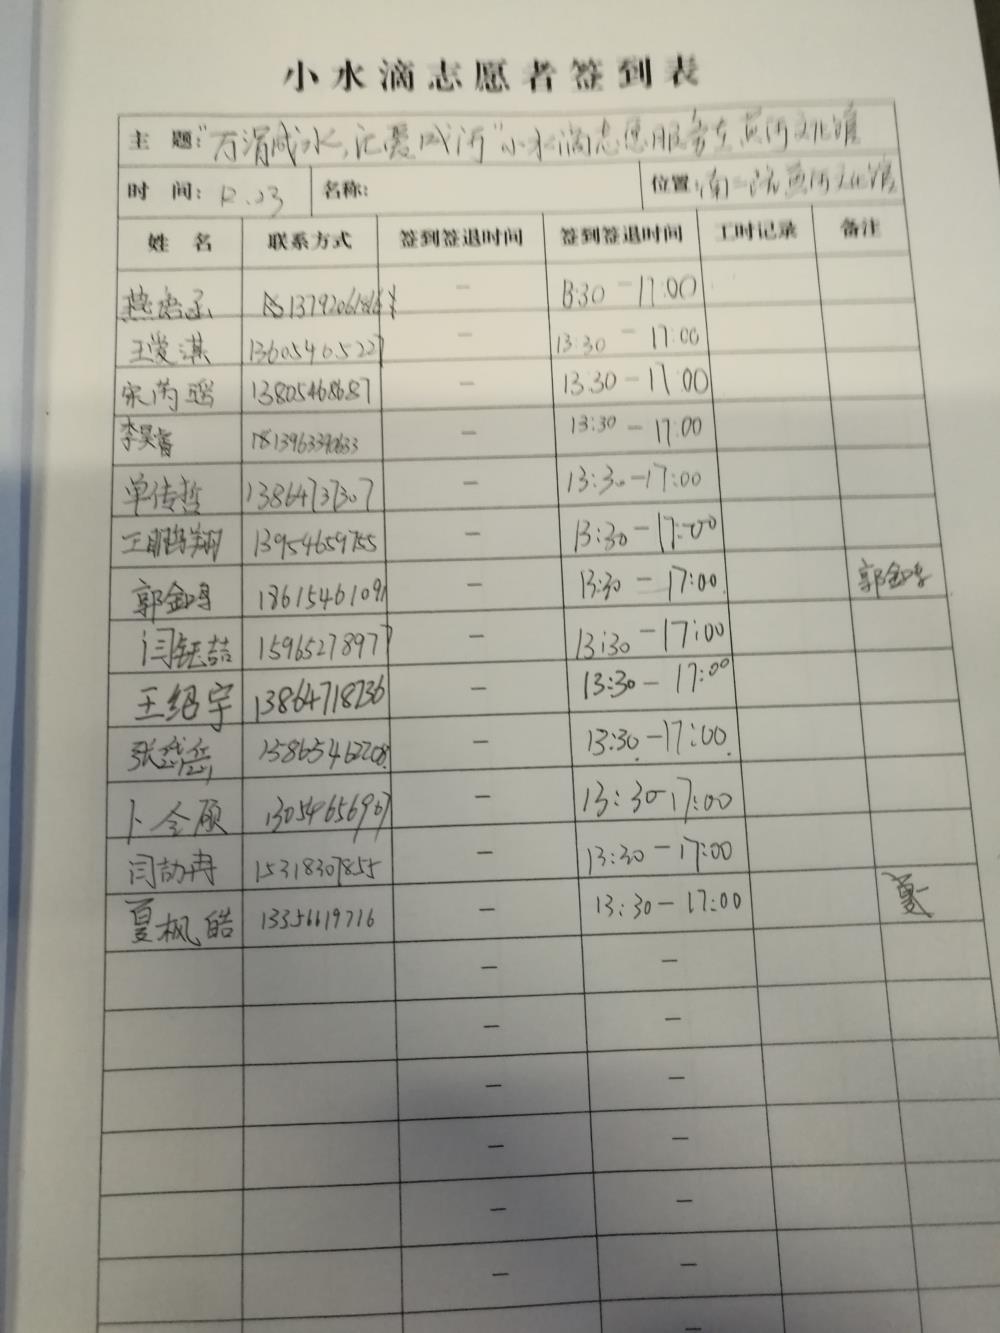 小水滴志愿者签到表
主 题：“万涓成水，汇爱成河”小水滴志愿服务在黄河文化馆
时 间：12.03 名称： 位置：南二路黄河文化馆
姓 名 联系方式 签到签退时间 签到签退时间 工时记录 备注
燕语函 — 13:30 — 17:00
王爱淇 13605465227 — 13:30 — 17:00
宋芮瑶 13805468687 — 13:30 — 17:00
李昊睿 13963390633 — 13:30 — 17:00
单传哲 13864737307 — 13:30 — 17:00
王鹏翔 13954659755 — 13:30 — 17:00
郭金鸣 18615461091 — 13:30 — 17:00 郭金鸣
闫钰喆 15965278977 — 13:30 — 17:00
王绍宇 13864718736 — 13:30 — 17:00
张 15865462208 — 13:30 — 17:00
卜令硕 13054656967 — 13:30 — 17:00
闫 15318307855 — 13:30 — 17:00
夏枫皓 13356619716 — 13:30 — 17:00 夏
— —
— —
— —
— —
— —
— —